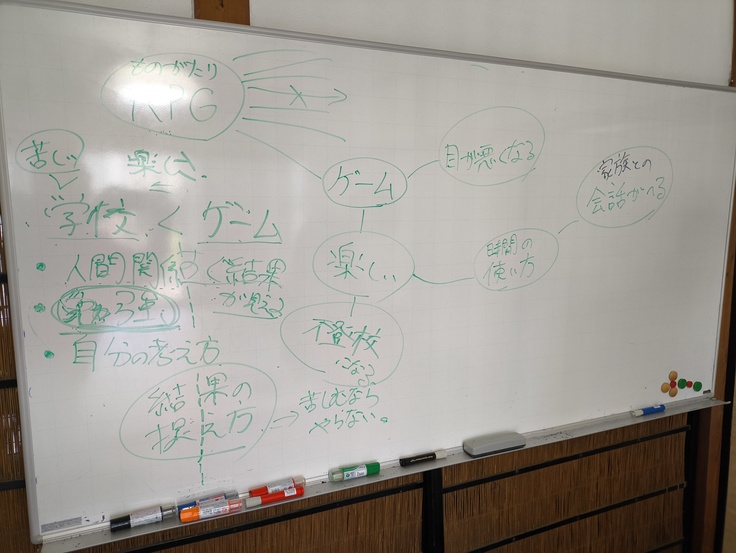 ものがたり
RPG
×
苦しい
楽しい
学校 < ゲーム
・人間関係
すぐ結果
が見える
・勉強
・自分の考え方
結果の
捉え方
→ 苦しむなら
やらない。
ゲーム
楽しい
不登校
になる
目が悪くなる
時間の
使い方
家族との
会話がへる